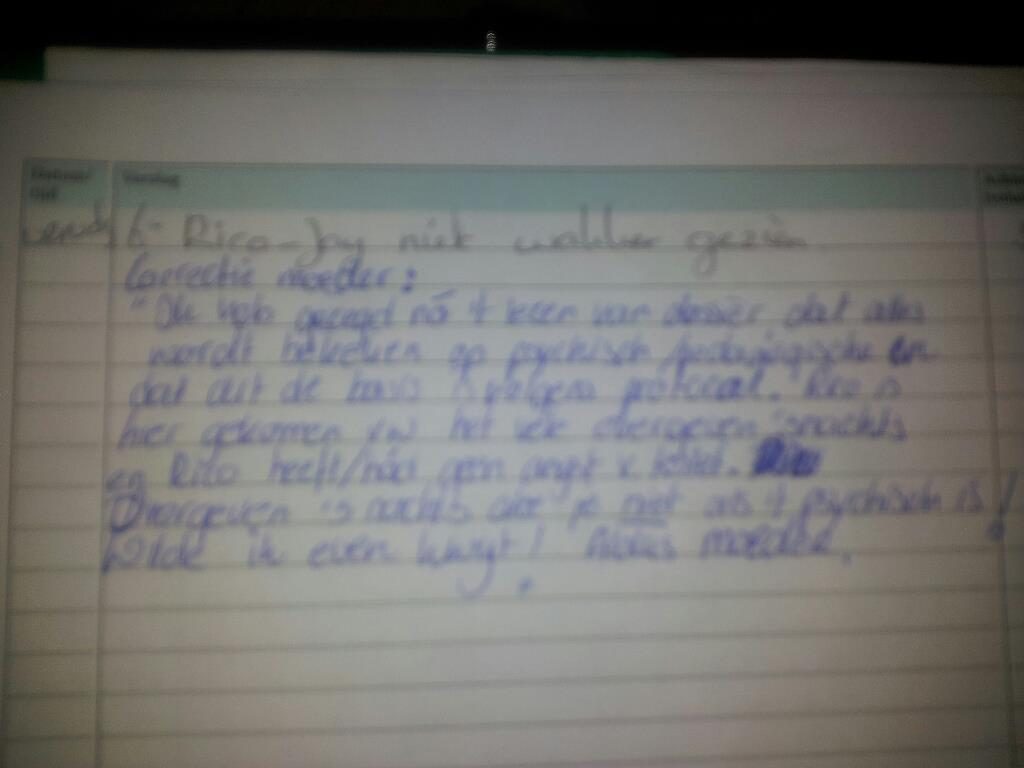 Datum/ tijd Verslag
Rico-Jay niet wakker gezien
Correctie moeder:
"Ik heb gezegd ná 't lezen van dossier dat alles
wordt bekeken op psychisch/pedagogische en
dat dit de basis is volgens protocol. Rico is
hier gekomen i.v.m. het vele overgeven 'snachts
en Rico heeft/had geen angst v.
Overgeven 's nachts doe je niet als 't psychisch is!
Wilde ik even kwijt! moeder.